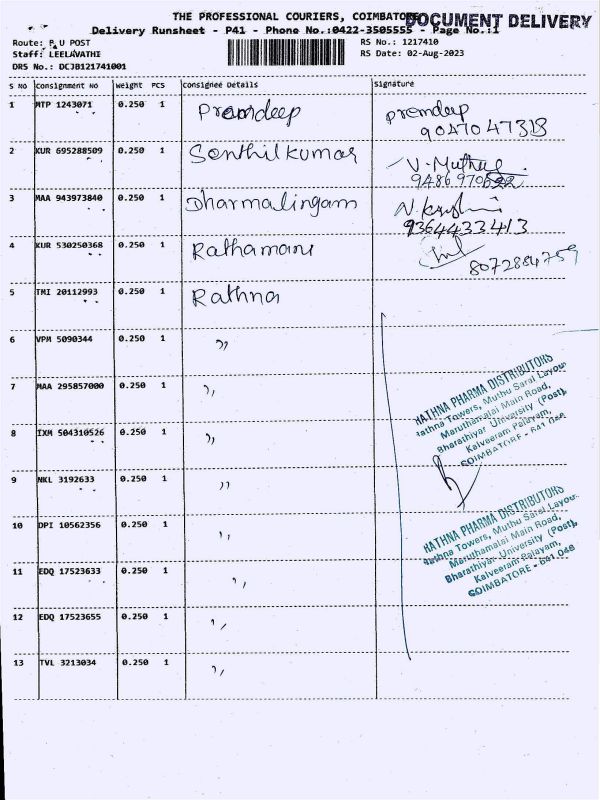 THE PROFESSIONAL COURIERS, COIMBATORE
DOCUMENT DELIVERY
Delivery Runsheet - P41 - Phone No.:0422-3505555 - Page No.:1
Route: P U POST
RS No.: 1217410
Staff: LEELAVATHI
RS Date: 02-Aug-2023
DRS No.: DCJB121741001
S NO Consignment No Weight PCS Consignee Details Signature
1 MTP 1243071 0.250 1 Pramdeep premdeep
9047047313
2 KUR 695288509 0.250 1 Senthilkumar V. Muthu
9486970522
3 MAA 943973840 0.250 1 Dharmalingam
9364433413
4 KUR 530250368 0.250 1 Rathamani
8072884759
5 TMI 20112993 0.250 1 Rathna
6 VPM 5090344 0.250 1 ,,
7 MAA 295857000 0.250 1 ,,
8 IXM 504310526 0.250 1 ,,
9 NKL 3192633 0.250 1 ,,
10 DPI 10562356 0.250 1 ,,
11 EDQ 17523633 0.250 1 ,,
12 EDQ 17523655 0.250 1 ,,
13 TVL 3213034 0.250 1 ,,
RATHNA PHARMA DISTRIBUTORS
Rathna Towers, Muthu Sarai Layout
Maruthamalai Main Road,
Bharathiyar University (Post),
Kalveeram Palayam,
COIMBATORE - 641 046
RATHNA PHARMA DISTRIBUTORS
Rathna Towers, Muthu Sarai Layout
Maruthamalai Main Road,
Bharathiyar University (Post),
Kalveeram Palayam,
COIMBATORE - 641 046